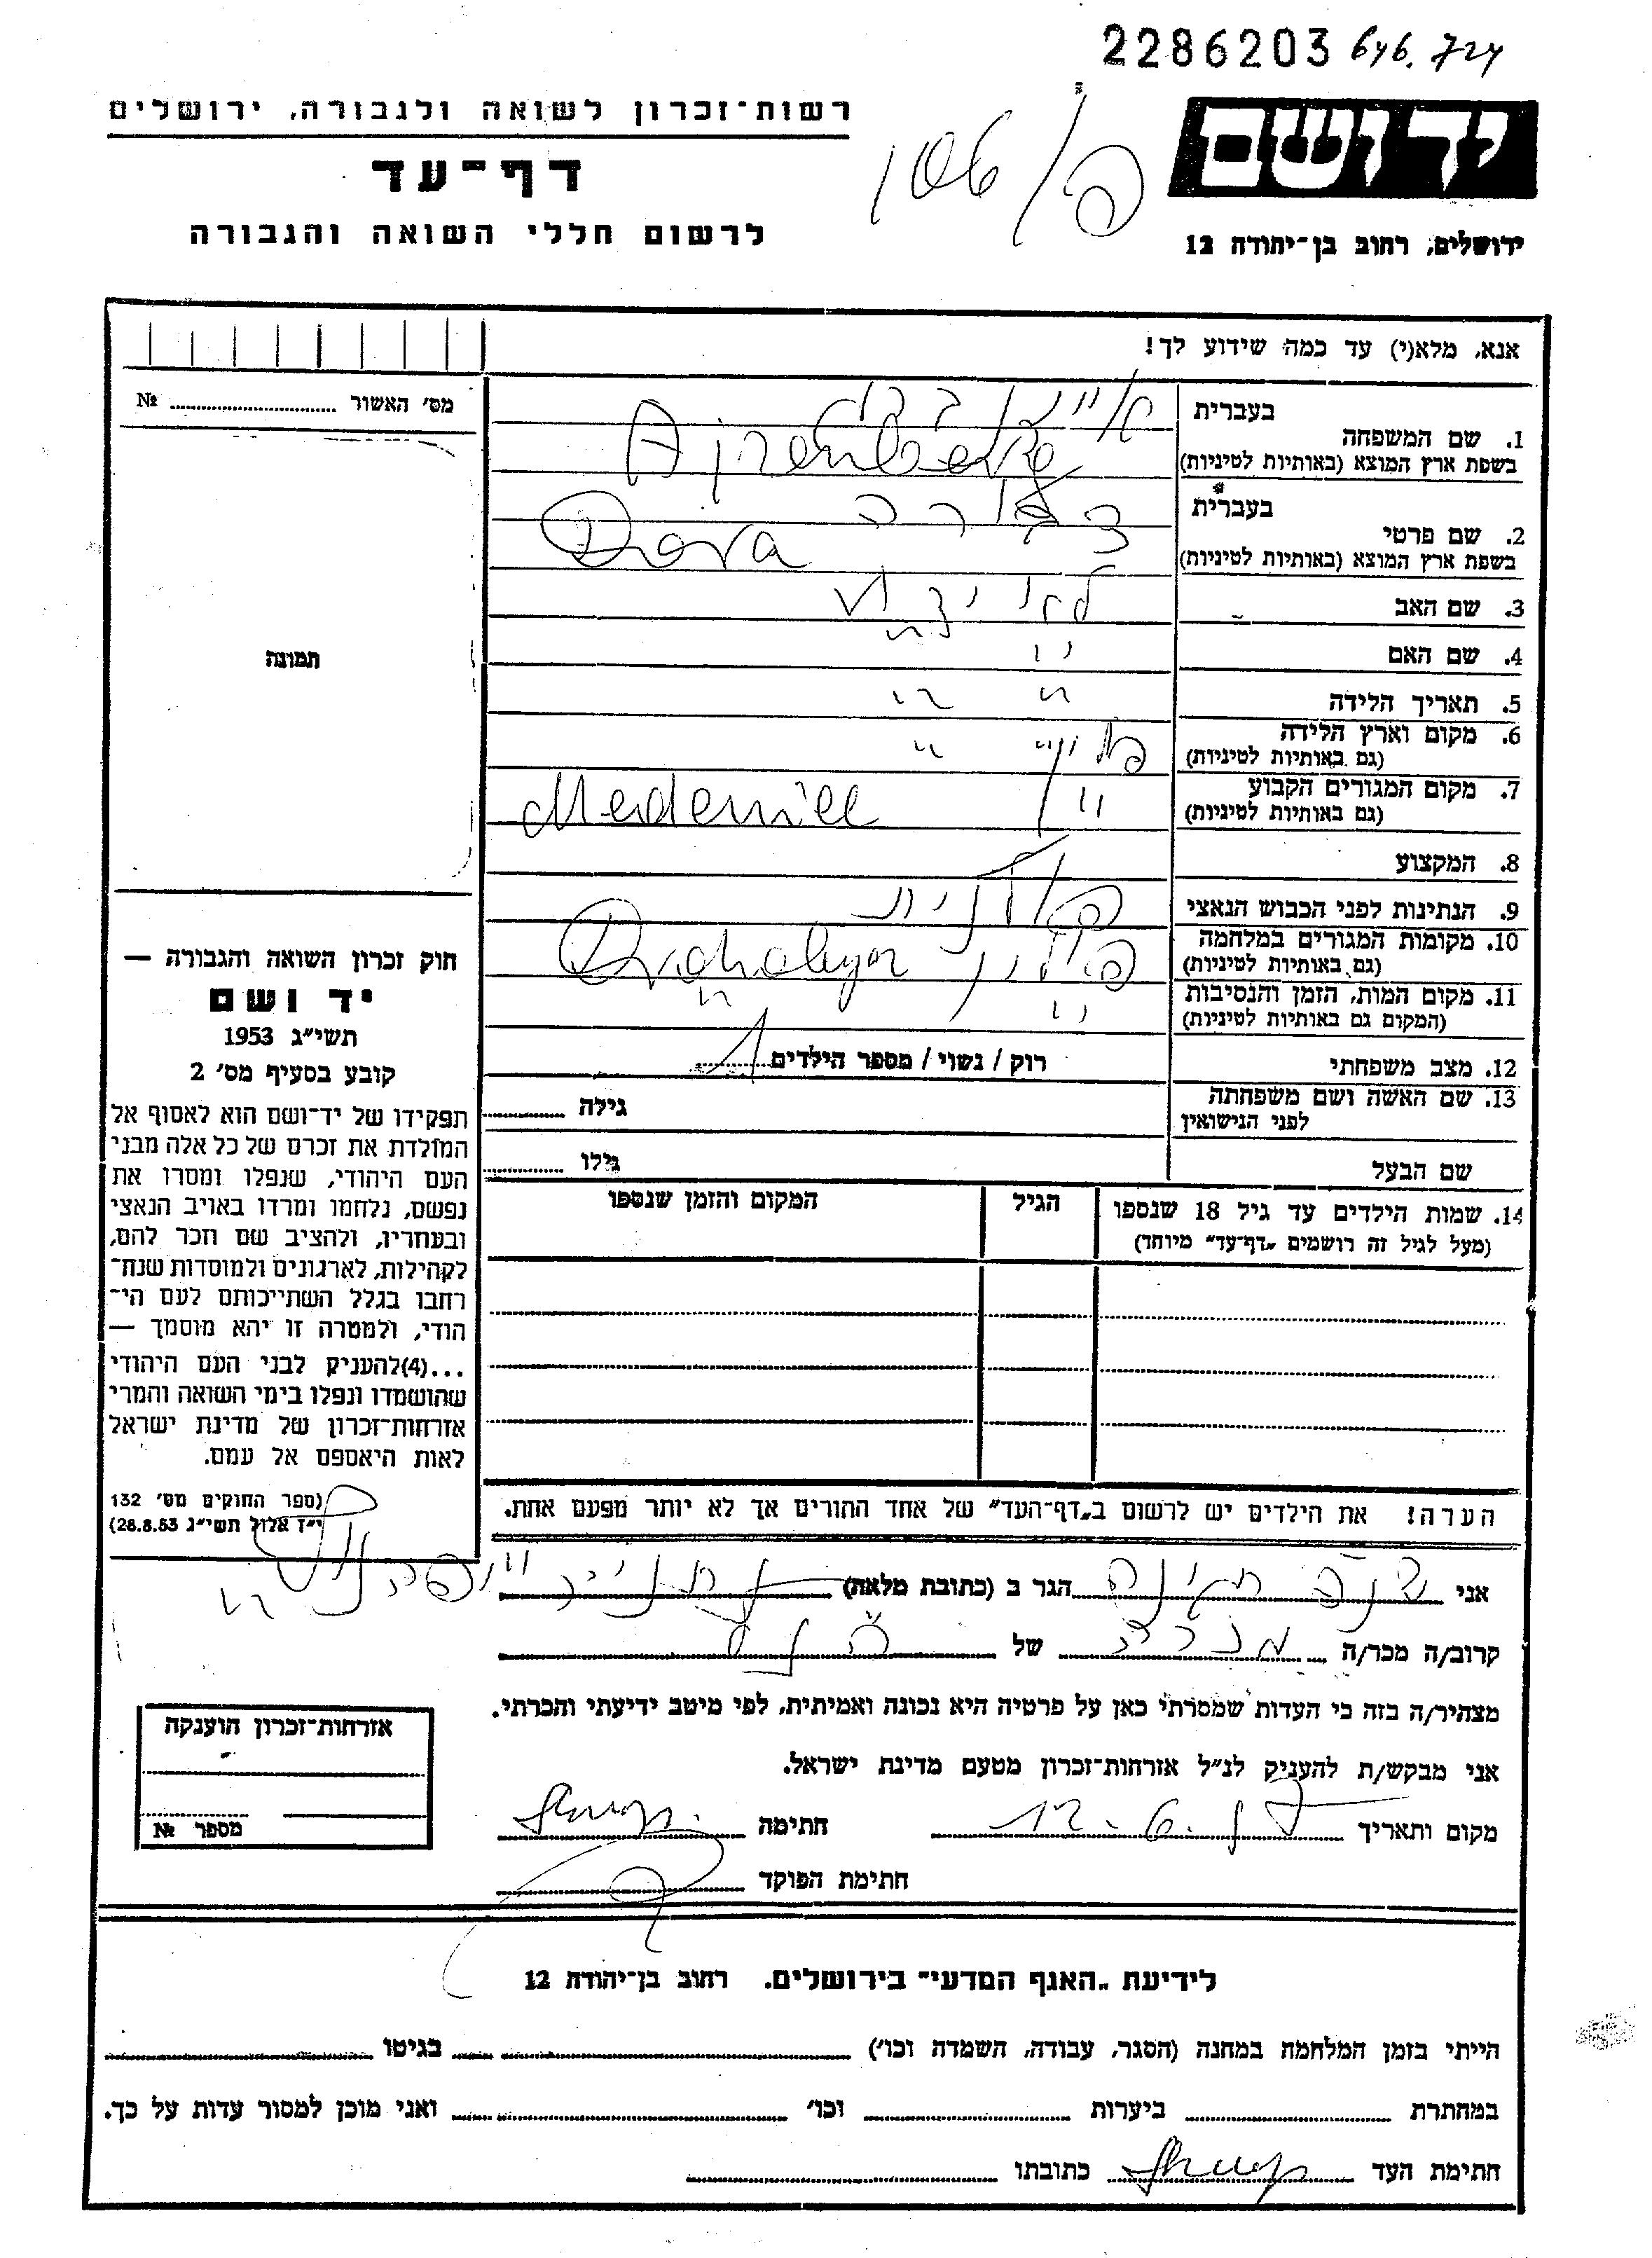 2286203 646.724
ידושם
ירושלים, רחוב בן־יהודה 12
רשות־זכרון לשואה ולגבורה, ירושלים
דף־עד
לרשום חללי השואה והגבורה
אנא, מלא(י) עד כמה שידוע לך!
מס׳ האשור № 
תמונה
1. שם המשפחה
בעברית
בשפת ארץ המוצא (באותיות לטיניות)
2. שם פרטי
בעברית
בשפת ארץ המוצא (באותיות לטיניות) Dora
3. שם האב לא ידוע
4. שם האם " "
5. תאריך הלידה " "
6. מקום וארץ הלידה
(גם באותיות לטיניות)
7. מקום המגורים הקבוע
(גם באותיות לטיניות)
8. המקצוע
9. הנתינות לפני הכבוש הנאצי פולנית
10. מקומות המגורים במלחמה
(גם באותיות לטיניות)
11. מקום המות, הזמן והנסיבות " "
(המקום גם באותיות לטיניות)
12. מצב משפחתי רוק / נשוי / מספר הילדים
13. שם האשה ושם משפחתה גילה
לפני הנישואין
שם הבעל גילו
14. שמות הילדים עד גיל 18 שנספו הגיל המקום והזמן שנספו
(מעל לגיל זה רושמים „דף־עד״ מיוחד)
הערה! את הילדים יש לרשום ב„דף־העד״ של אחד ההורים אך לא יותר מפעם אחת.
חוק זכרון השואה והגבורה —
יד ושם
תשי״ג 1953
קובע בסעיף מס׳ 2
תפקידו של יד־ושם הוא לאסוף אל
המולדת את זכרם של כל אלה מבני
העם היהודי, שנפלו ומסרו את
נפשם, נלחמו ומרדו באויב הנאצי
ובעוזריו, ולהציב שם וזכר להם,
לקהילות, לארגונים ולמוסדות שנח־
רבו בגלל השתייכותם לעם הי־
הודי, ולמטרה זו יהא מוסמך —
...(4)להעניק לבני העם היהודי
שהושמדו ונפלו בימי השואה והמרי
אזרחות־זכרון של מדינת ישראל
לאות היאספם אל עמם.
(ספר החוקים מס׳ 132
י״ז אלול תשי״ג 28.8.53)
אני הגר ב (כתובת מלאה)
קרוב/ה מכר/ה של
מצהיר/ה בזה כי העדות שמסרתי כאן על פרטיה היא נכונה ואמיתית, לפי מיטב ידיעתי והכרתי.
אני מבקש/ת להעניק לנ״ל אזרחות־זכרון מטעם מדינת ישראל.
מקום ותאריך 12.6. חתימה
חתימת הפוקד
אזרחות־זכרון הוענקה
מספר №
לידיעת „האגף המדעי״ בירושלים. רחוב בן־יהודה 12
הייתי בזמן המלחמה במחנה (הסגר, עבודה, השמדה וכו׳) בגיטו
במחתרת ביערות וכו׳ ואני מוכן למסור עדות על כך.
חתימת העד כתובתו